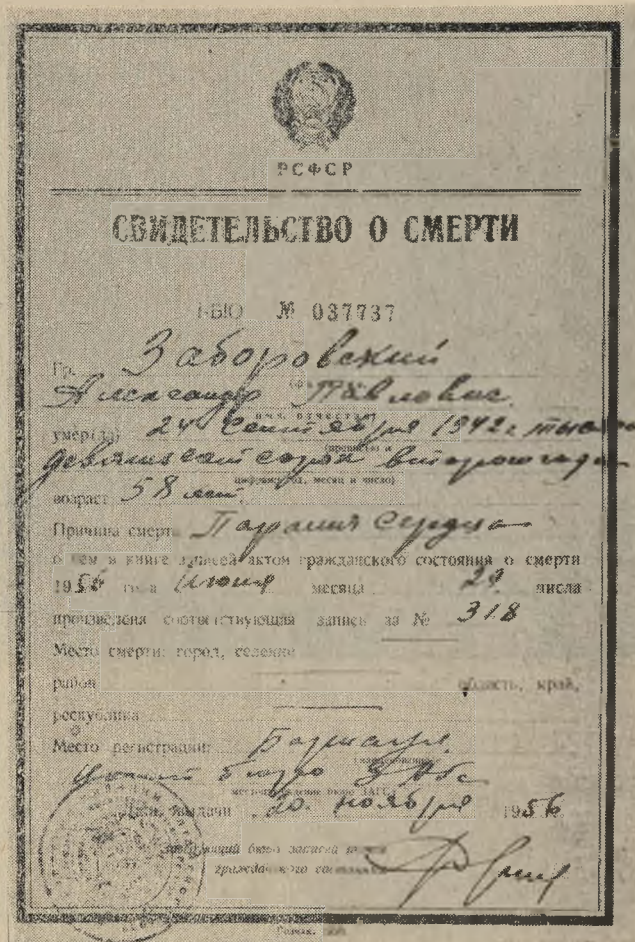 РСФСР
СВИДЕТЕЛЬСТВО О СМЕРТИ
I-БЮ № 037737
Гр. Заборовский
Александр Павлович
имя, отчество
умер(ла) 24 Сентября 1942 г. тысяча
девятьсот сорок второго года
месяц и число)
возраст 58 лет.
Причина смерти Паралич Сердца
о чем в книге записей актов гражданского состояния о смерти
1956 года Июня месяца 29 числа
произведена соответствующая запись за № 318
Место смерти: город, селение
район область, край,
республика
Место регистрации
бюро ЗАГС
выдачи 20 ноября 1956
бюро записи актов
гражданского состояния